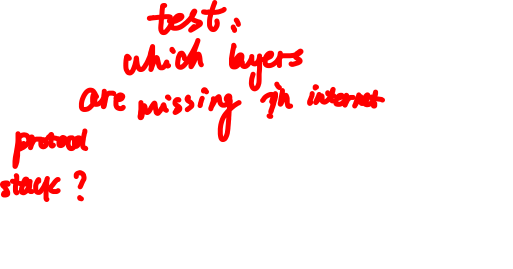 test:
which layers
are missing in internet
protocol
stack?